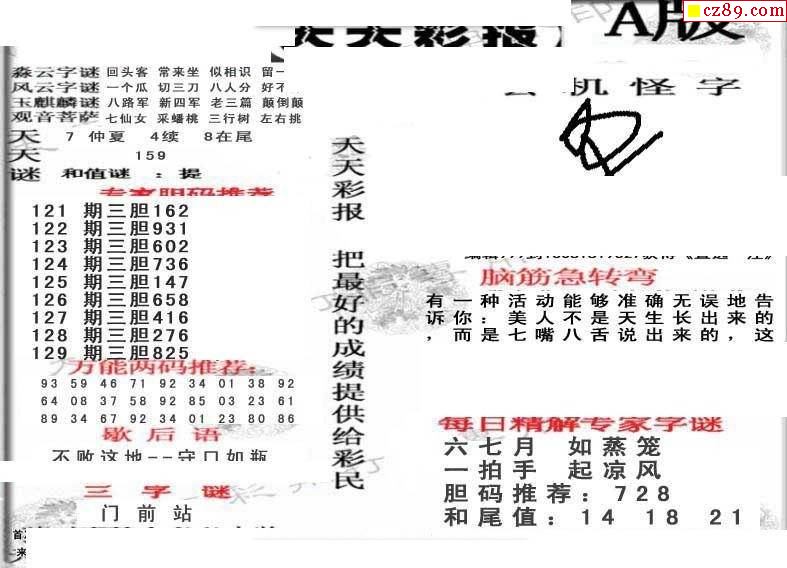 cz89.com
天天彩报
A版
淼云字谜 回头客 常来坐 似相识 留一
风云字谜 一个瓜 切三刀 八人分 好不
玉麒麟谜 八路军 新四军 老三篇 颠倒颠
观音菩萨 七仙女 采蟠桃 三行树 左右挑
天 7 仲夏 4续 8在尾
天 159
谜 和值谜 : 提
专家胆码推荐
121 期三胆162
122 期三胆931
123 期三胆602
124 期三胆736
125 期三胆147
126 期三胆658
127 期三胆416
128 期三胆276
129 期三胆825
万能两码推荐:
93 59 46 71 92 34 01 38 92
64 08 37 58 92 85 03 23 61
89 34 67 92 34 01 23 80 86
歇后语
不败这地--守口如瓶
三字谜
门前站
首
来
天天彩报 把最好的成绩提供给彩民
机怪字
脑筋急转弯
有一种活动能够准确无误地告
诉你:美人不是天生长出来的
,而是七嘴八舌说出来的,这
每日精解专家字谜
六七月 如蒸笼
一拍手 起凉风
胆码推荐:728
和尾值:14 18 21